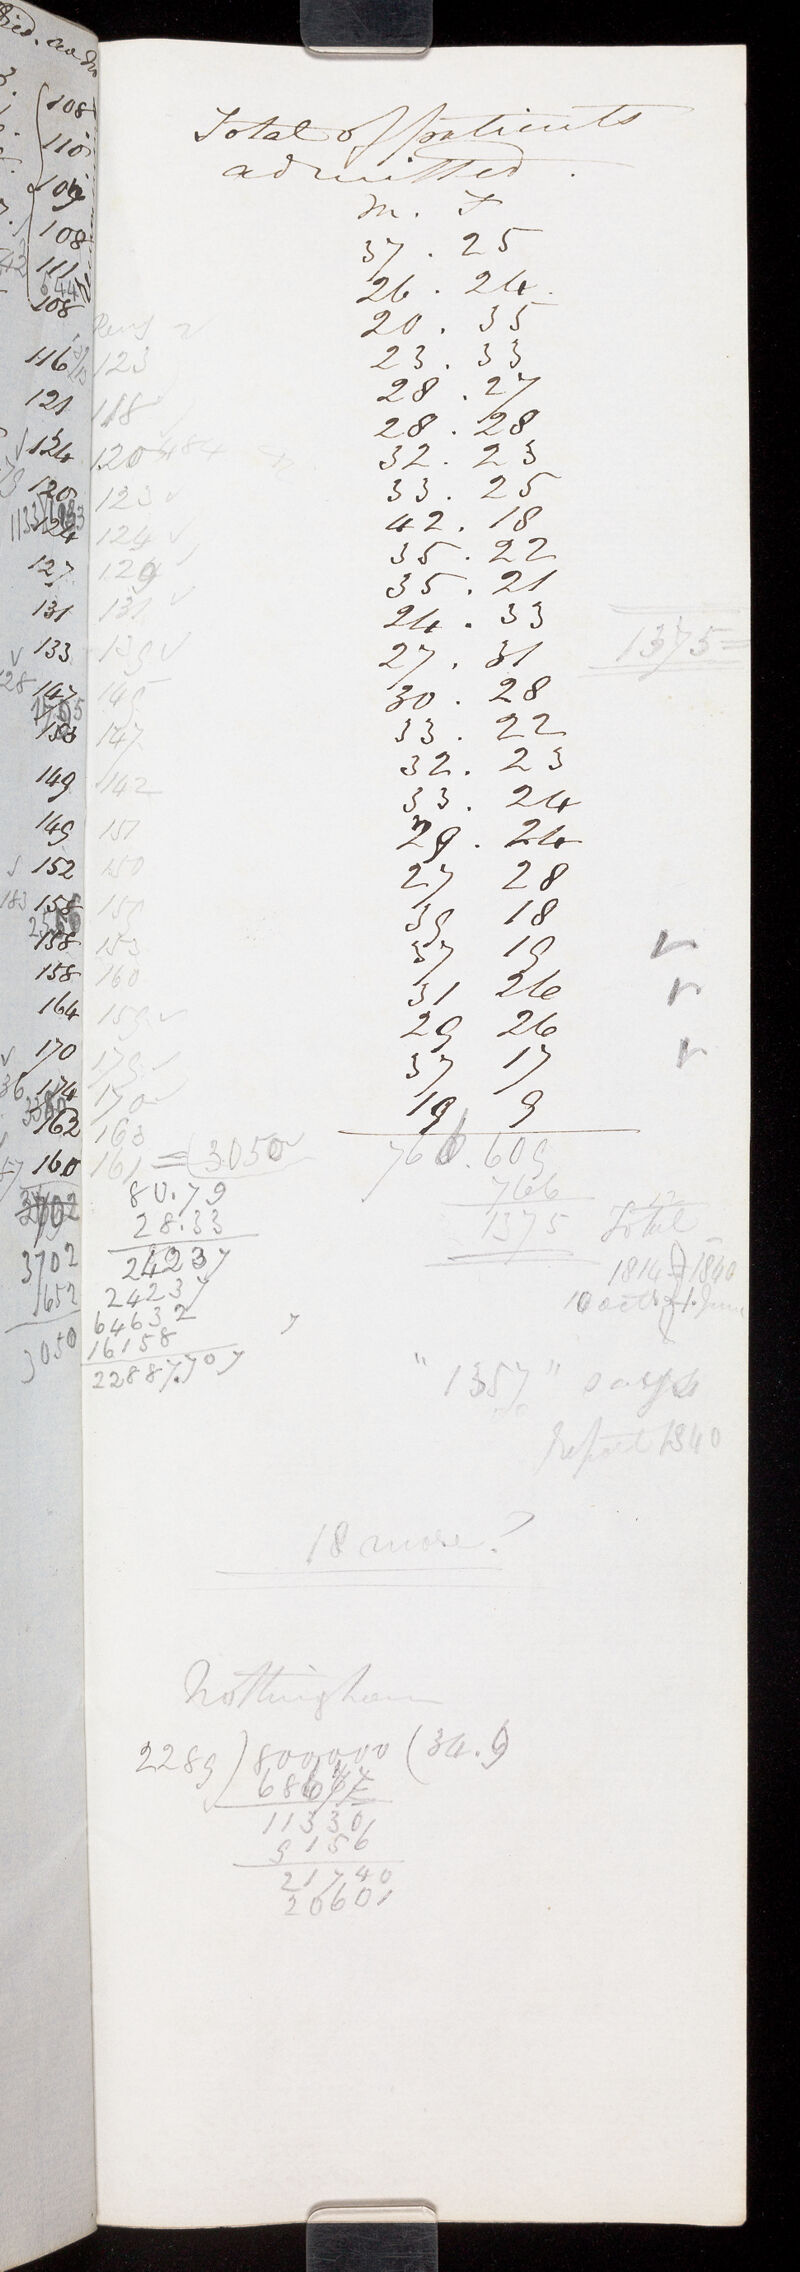 Total of patients
admitted.
M. F
37. 25
26. 24.
20. 35
23. 33
28. 27
28. 28
32. 23
33. 25
42. 18
35. 22
35. 21
24. 33
27. 31
30. 28
33. 22
32. 23
33. 24
29. 24
27 28
39 18
37 19
31 26
29 26
37 17
19 9
766.609
766
1375 Total
1814 1840
10 octr 1. June
"1357" says
report 1840
18 more?
1375
108
110
109
108
111
108
116 123
121 118
124 120
120 123
124 124
127 129
131 131
133 139
147 145
153 147
149 142
149 151
152 150
158 159
158 153
158 160
164 159
170 179
174 170
162 163
160 161 = 3050
3702
1652
3050
80.79
28.33
24237
24237
64632
16158
22887.707
Nottingham
2289 ) 800000 ( 34.9
6867
11330
9156
21740
20601